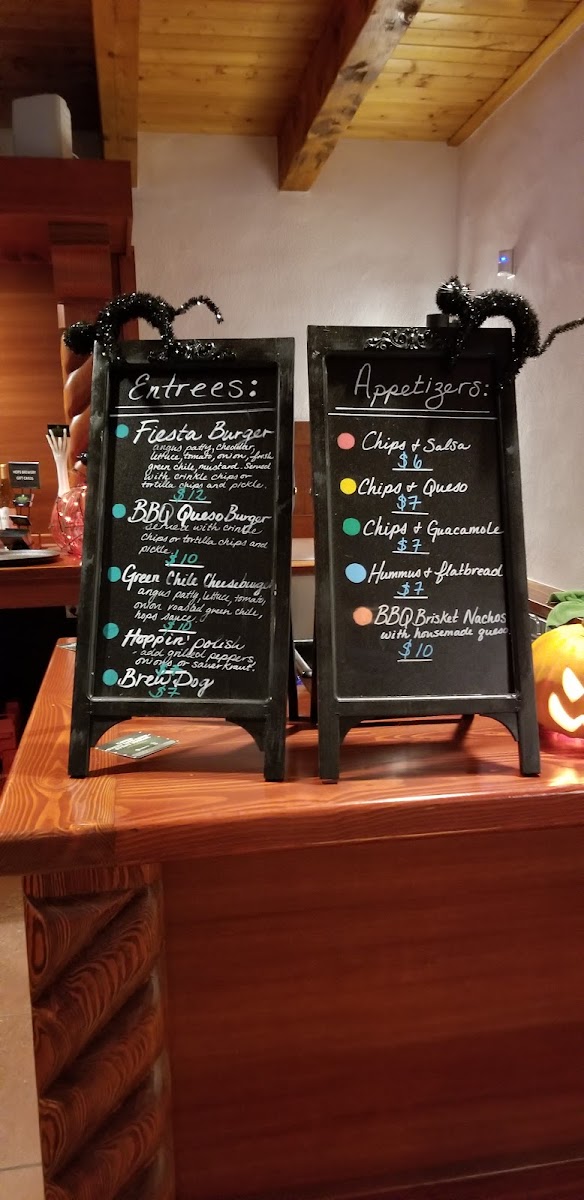 Entrees:
Fiesta Burger
angus patty, cheddar,
lettuce, tomato, onion, fresh
green chile, mustard. Served
with crinkle chips or
tortilla chips and pickle.
$12
BBQ Queso Burger
served with crinkle
chips or tortilla chips and
pickle.
$10
Green Chile Cheeseburger
angus patty, lettuce, tomato,
onion roasted green chile,
hops sauce.
$10
Hoppin' polish
- add grilled peppers,
onions or sauerkraut.
Brew Dog
$7
Appetizers:
Chips & Salsa
$6
Chips & Queso
$7
Chips & Guacamole
$7
Hummus & flatbread
$7
BBQ Brisket Nachos
with housemade queso
$10